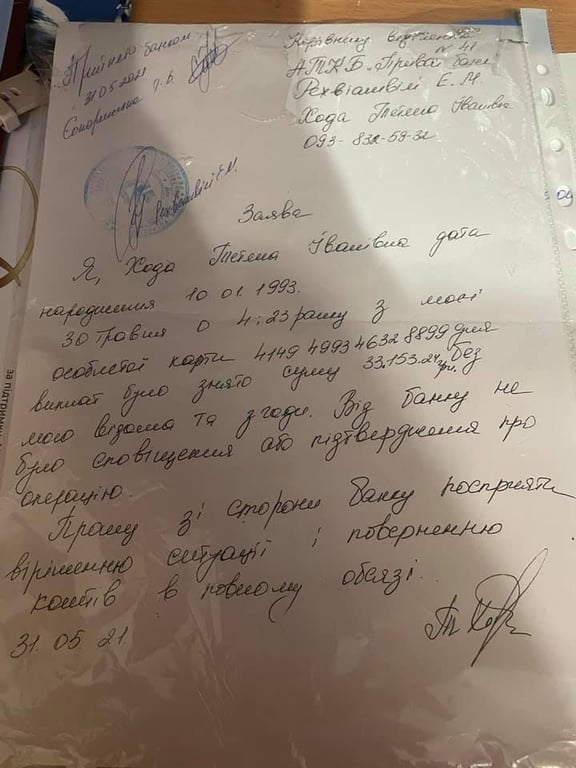 Прийнято банком
31.05.2021
Керівнику відділення
№ 41
АТКБ "Приват банк
Рехвіашвілі Е. М.
Хода Тетяна Іванівна
093-832-59-32
Рехвіашвілі Е.М.
Заява
Я, Хода Тетяна Іванівна дата
народження 10 01. 1993.
30 травня о 4:23 ранку з моєї
особистої карти 4149 4993 4632 8899 для
виплат було знято суму 33.153.21 грн. без
мого відома та згоди. Від банку не
було сповіщення або підтвердження про
операцію.
Прошу зі сторони банку посприяти
вірішенню ситуації і поверненню
коштів в повному обсязі.
31. 05. 21.
за підтримки